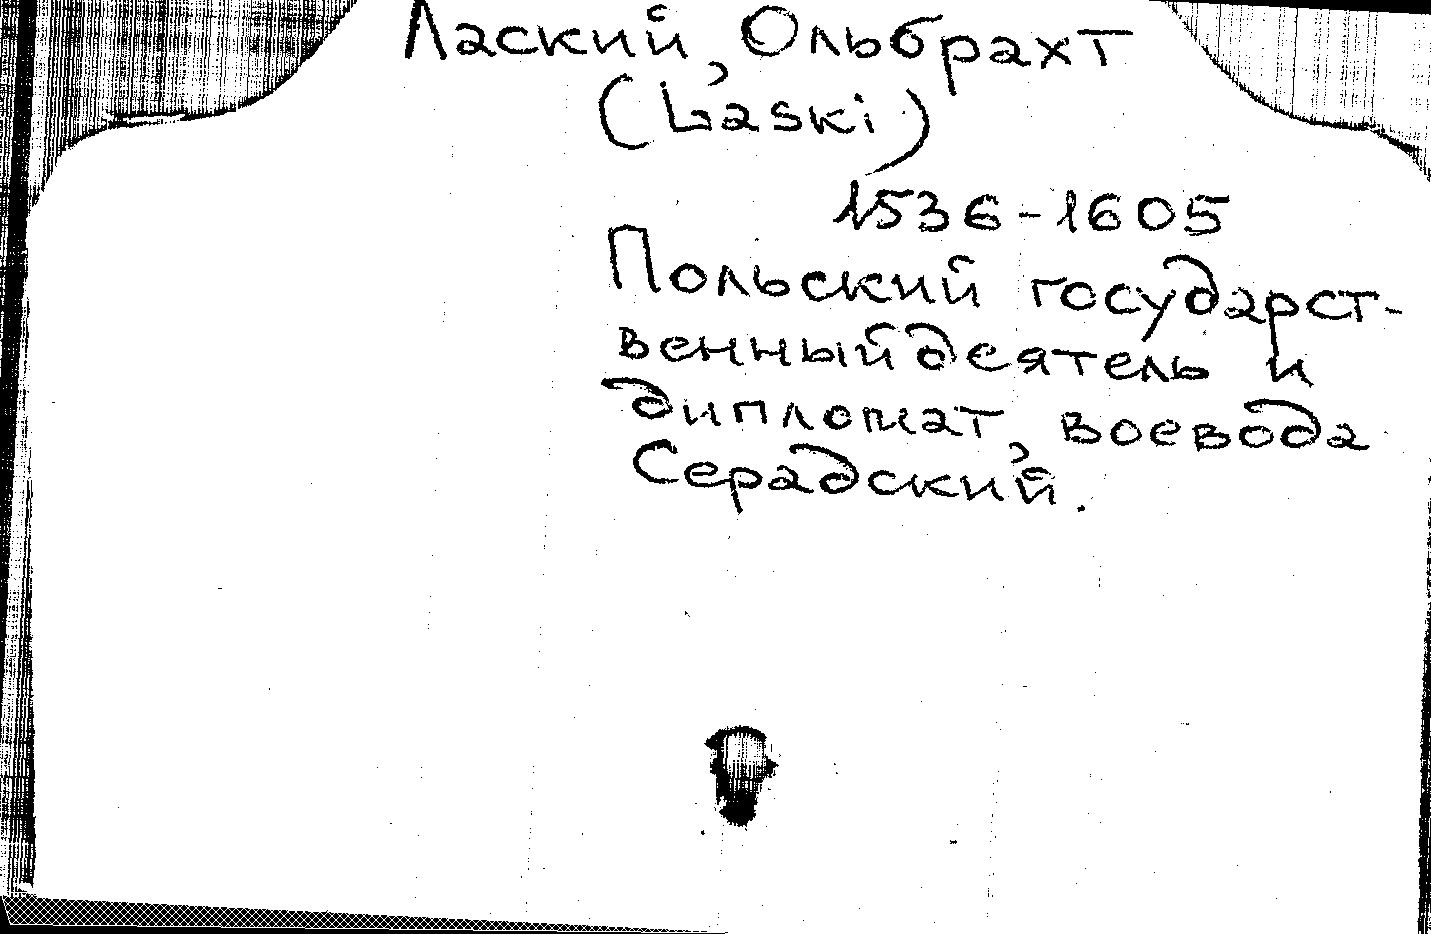 Лаский, Ольбрахт
(Łaski)
1536-1605
Польский государст-
венный деятель и
дипломат, воевода
Серадский.